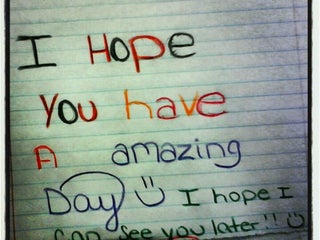 I Hope
You have
A amazing
Day I hope I
can see you later!!